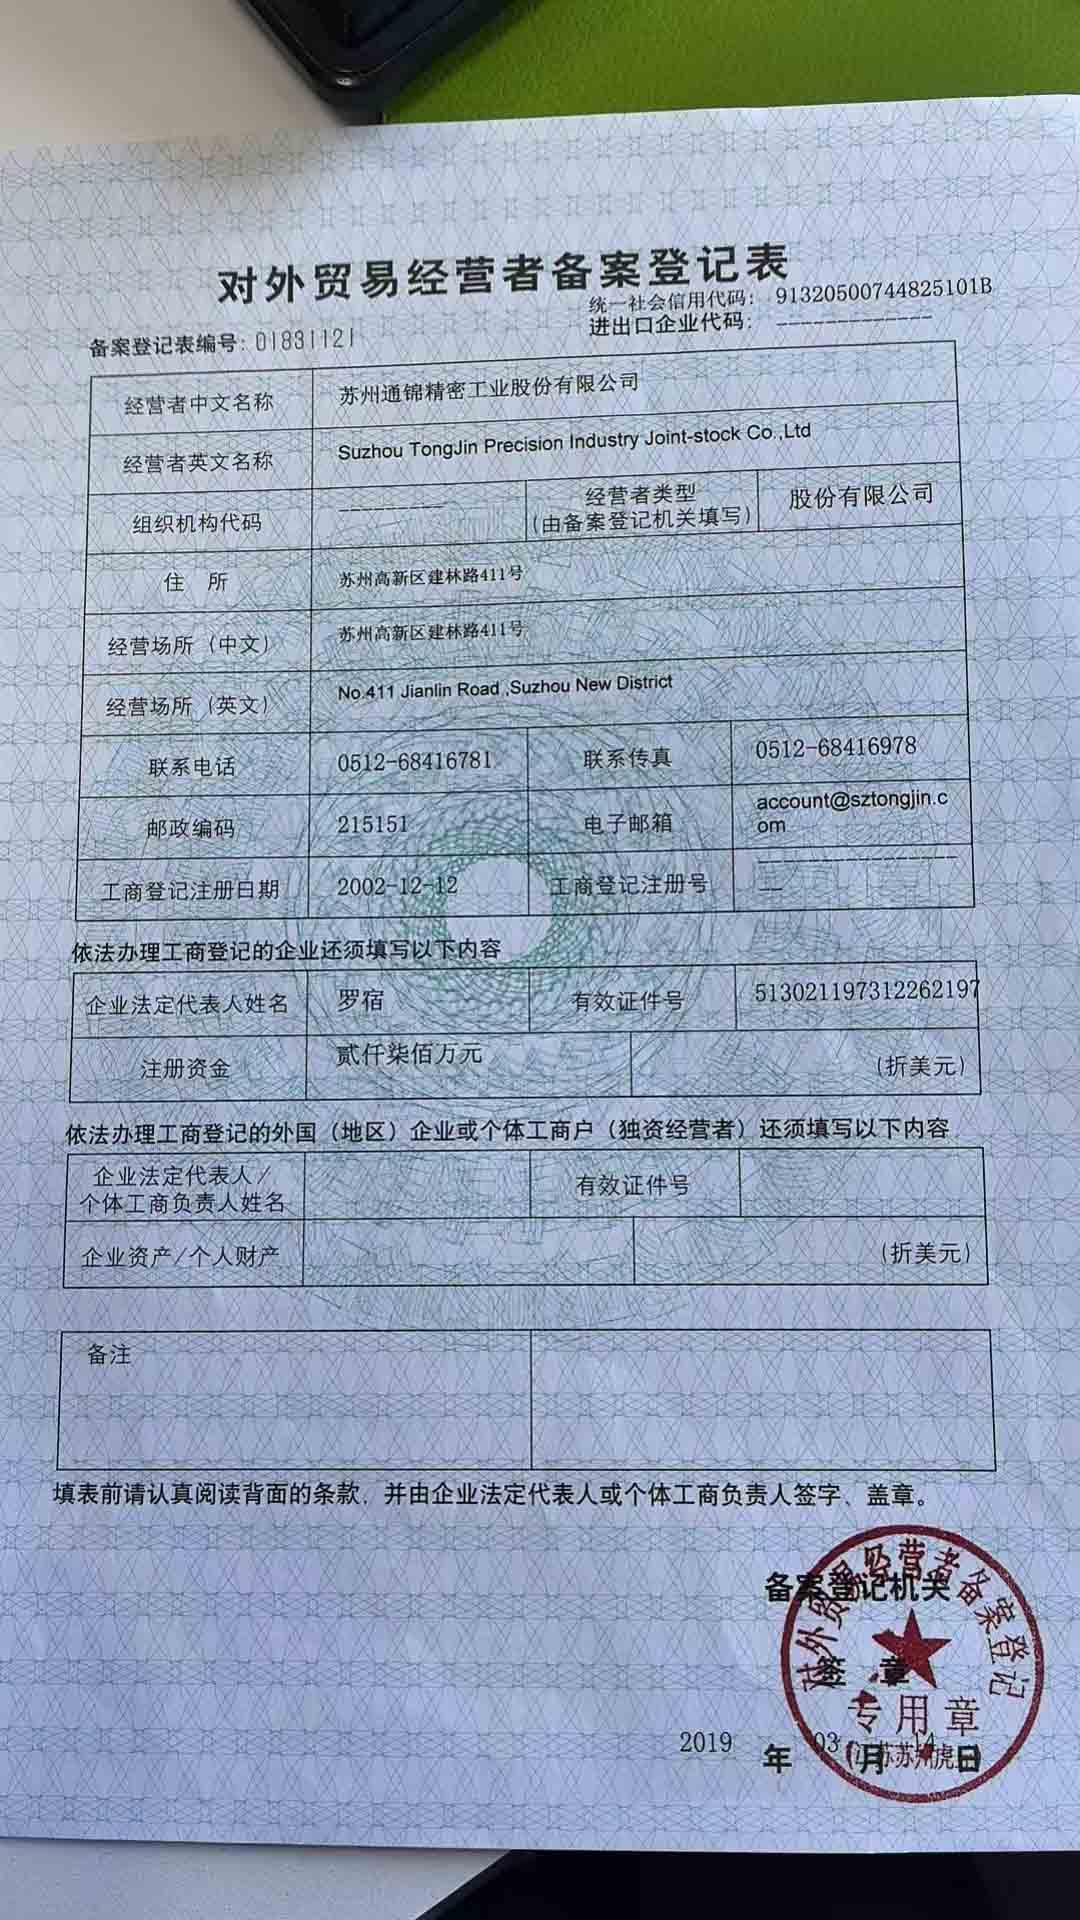 对外贸易经营者备案登记表
统一社会信用代码： 91320500744825101B
进出口企业代码： -------------
备案登记表编号: 01831121
经营者中文名称 苏州通锦精密工业股份有限公司
经营者英文名称 Suzhou TongJin Precision Industry Joint-stock Co.,Ltd
组织机构代码 --------- 经营者类型 (由备案登记机关填写) 股份有限公司
住 所 苏州高新区建林路411号
经营场所（中文） 苏州高新区建林路411号
经营场所（英文） No.411 Jianlin Road ,Suzhou New District
联系电话 0512-68416781 联系传真 0512-68416978
邮政编码 215151 电子邮箱 account@sztongjin.c
om
工商登记注册日期 2002-12-12 工商登记注册号 -----------------
依法办理工商登记的企业还须填写以下内容
企业法定代表人姓名 罗宿 有效证件号 513021197312262197
注册资金 贰仟柒佰万元 (折美元)
依法办理工商登记的外国（地区）企业或个体工商户（独资经营者）还须填写以下内容
企业法定代表人/
个体工商负责人姓名 有效证件号
企业资产/个人财产 (折美元)
备注
填表前请认真阅读背面的条款，并由企业法定代表人或个体工商负责人签字、盖章。
备案登记机关
签 章
对外贸易经营者备案登记
专用章
2019 年 03 月 14 日